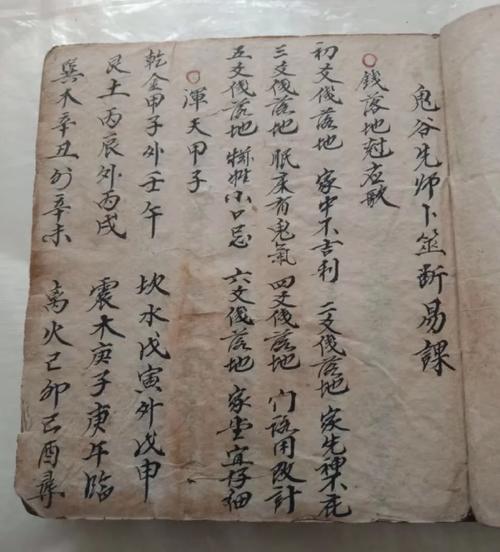 鬼谷先师卜筮断易課
錢落地尅应歌
初文伐落地 家中不吉利 二文伐落地 家先神不
三文伐落地 眠床有鬼氣 四文伐落地 门路用改計
五文伐落地 牲小口忌 六文伐落地 家堂宜仔细
渾天甲子
乾金甲子外壬午 坎水戊寅外戊申
艮土丙辰外丙戌 震木庚子庚午臨
巽木辛丑外辛未 离火己卯己酉尋